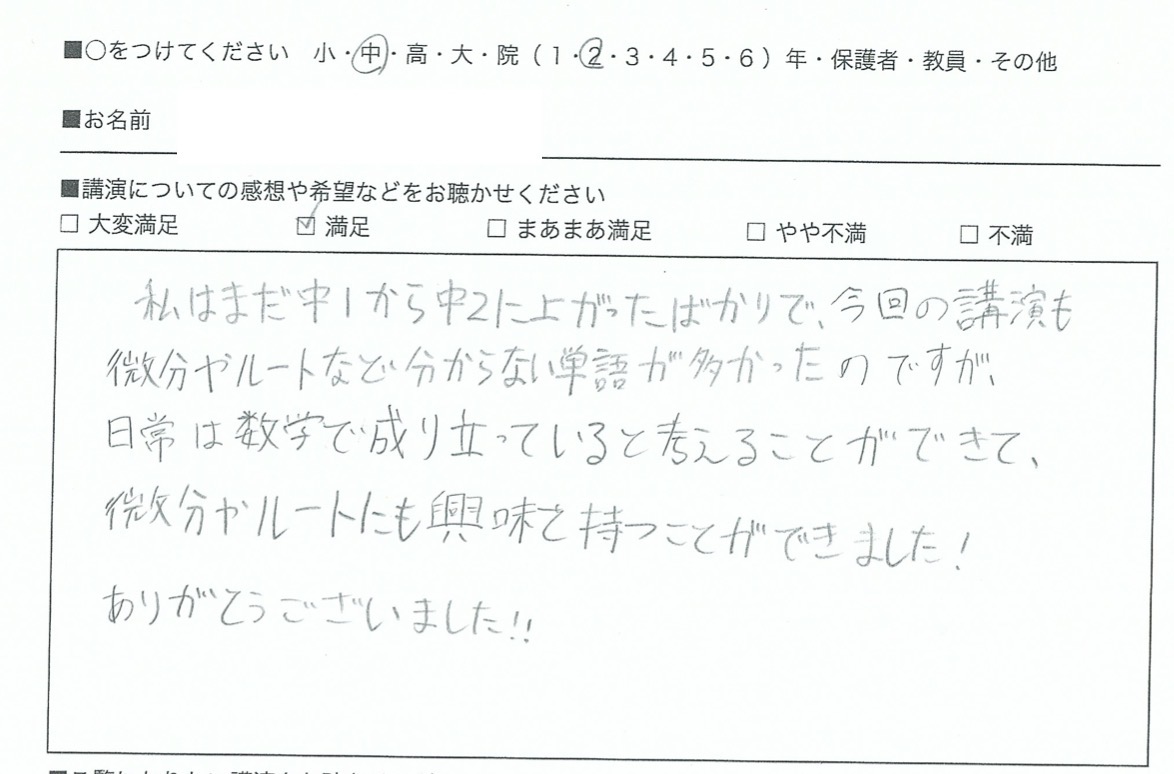 ■○をつけてください 小・中・高・大・院（1・2・3・4・5・6）年・保護者・教員・その他
■お名前
■講演についての感想や希望などをお聴かせください
□ 大変満足 ☑ 満足 □ まあまあ満足 □ やや不満 □ 不満
私はまだ中1から中2に上がったばかりで、今回の講演も
微分やルートなど分からない単語が多かったのですが、
日常は数学で成り立っていると考えることができて、
微分やルートにも興味を持つことができました!
ありがとうございました!!